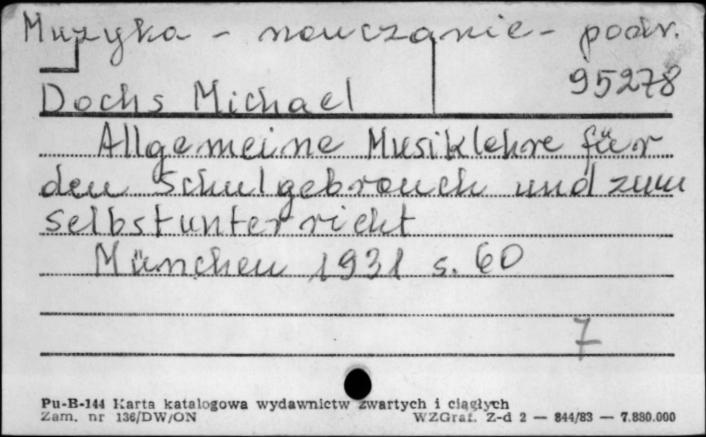 Muzyka - nauczanie - podr.
95278
Dachs Michael
Allgemeine Musiklehre für
den Schulgebrauch und zum
Selbstunterricht
München 1931 s. 60
7
Pu-B-144 Karta katalogowa wydawnictw zwartych i ciągłych
Zam. nr 136/DW/ON WZGraf. Z-d 2 — 844/83 — 7.880.000